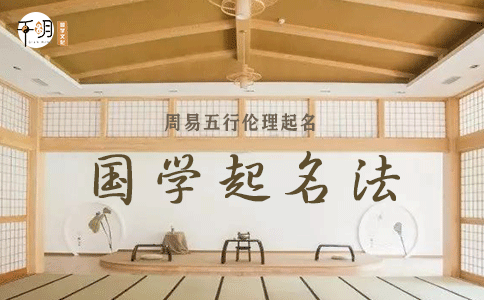 周易五行伦理起名
国学起名法